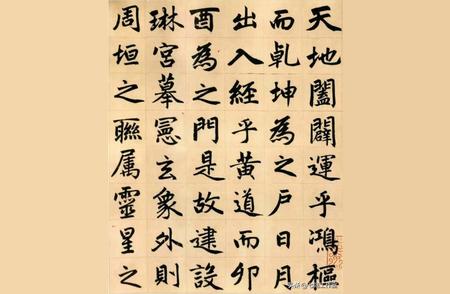 天地闔闢運乎鴻樞
而乹坤為之户日月
出入經乎黄道而卯
酉為之門是故建設
琳宮摹憲玄象外則
周垣之聯属靈星之